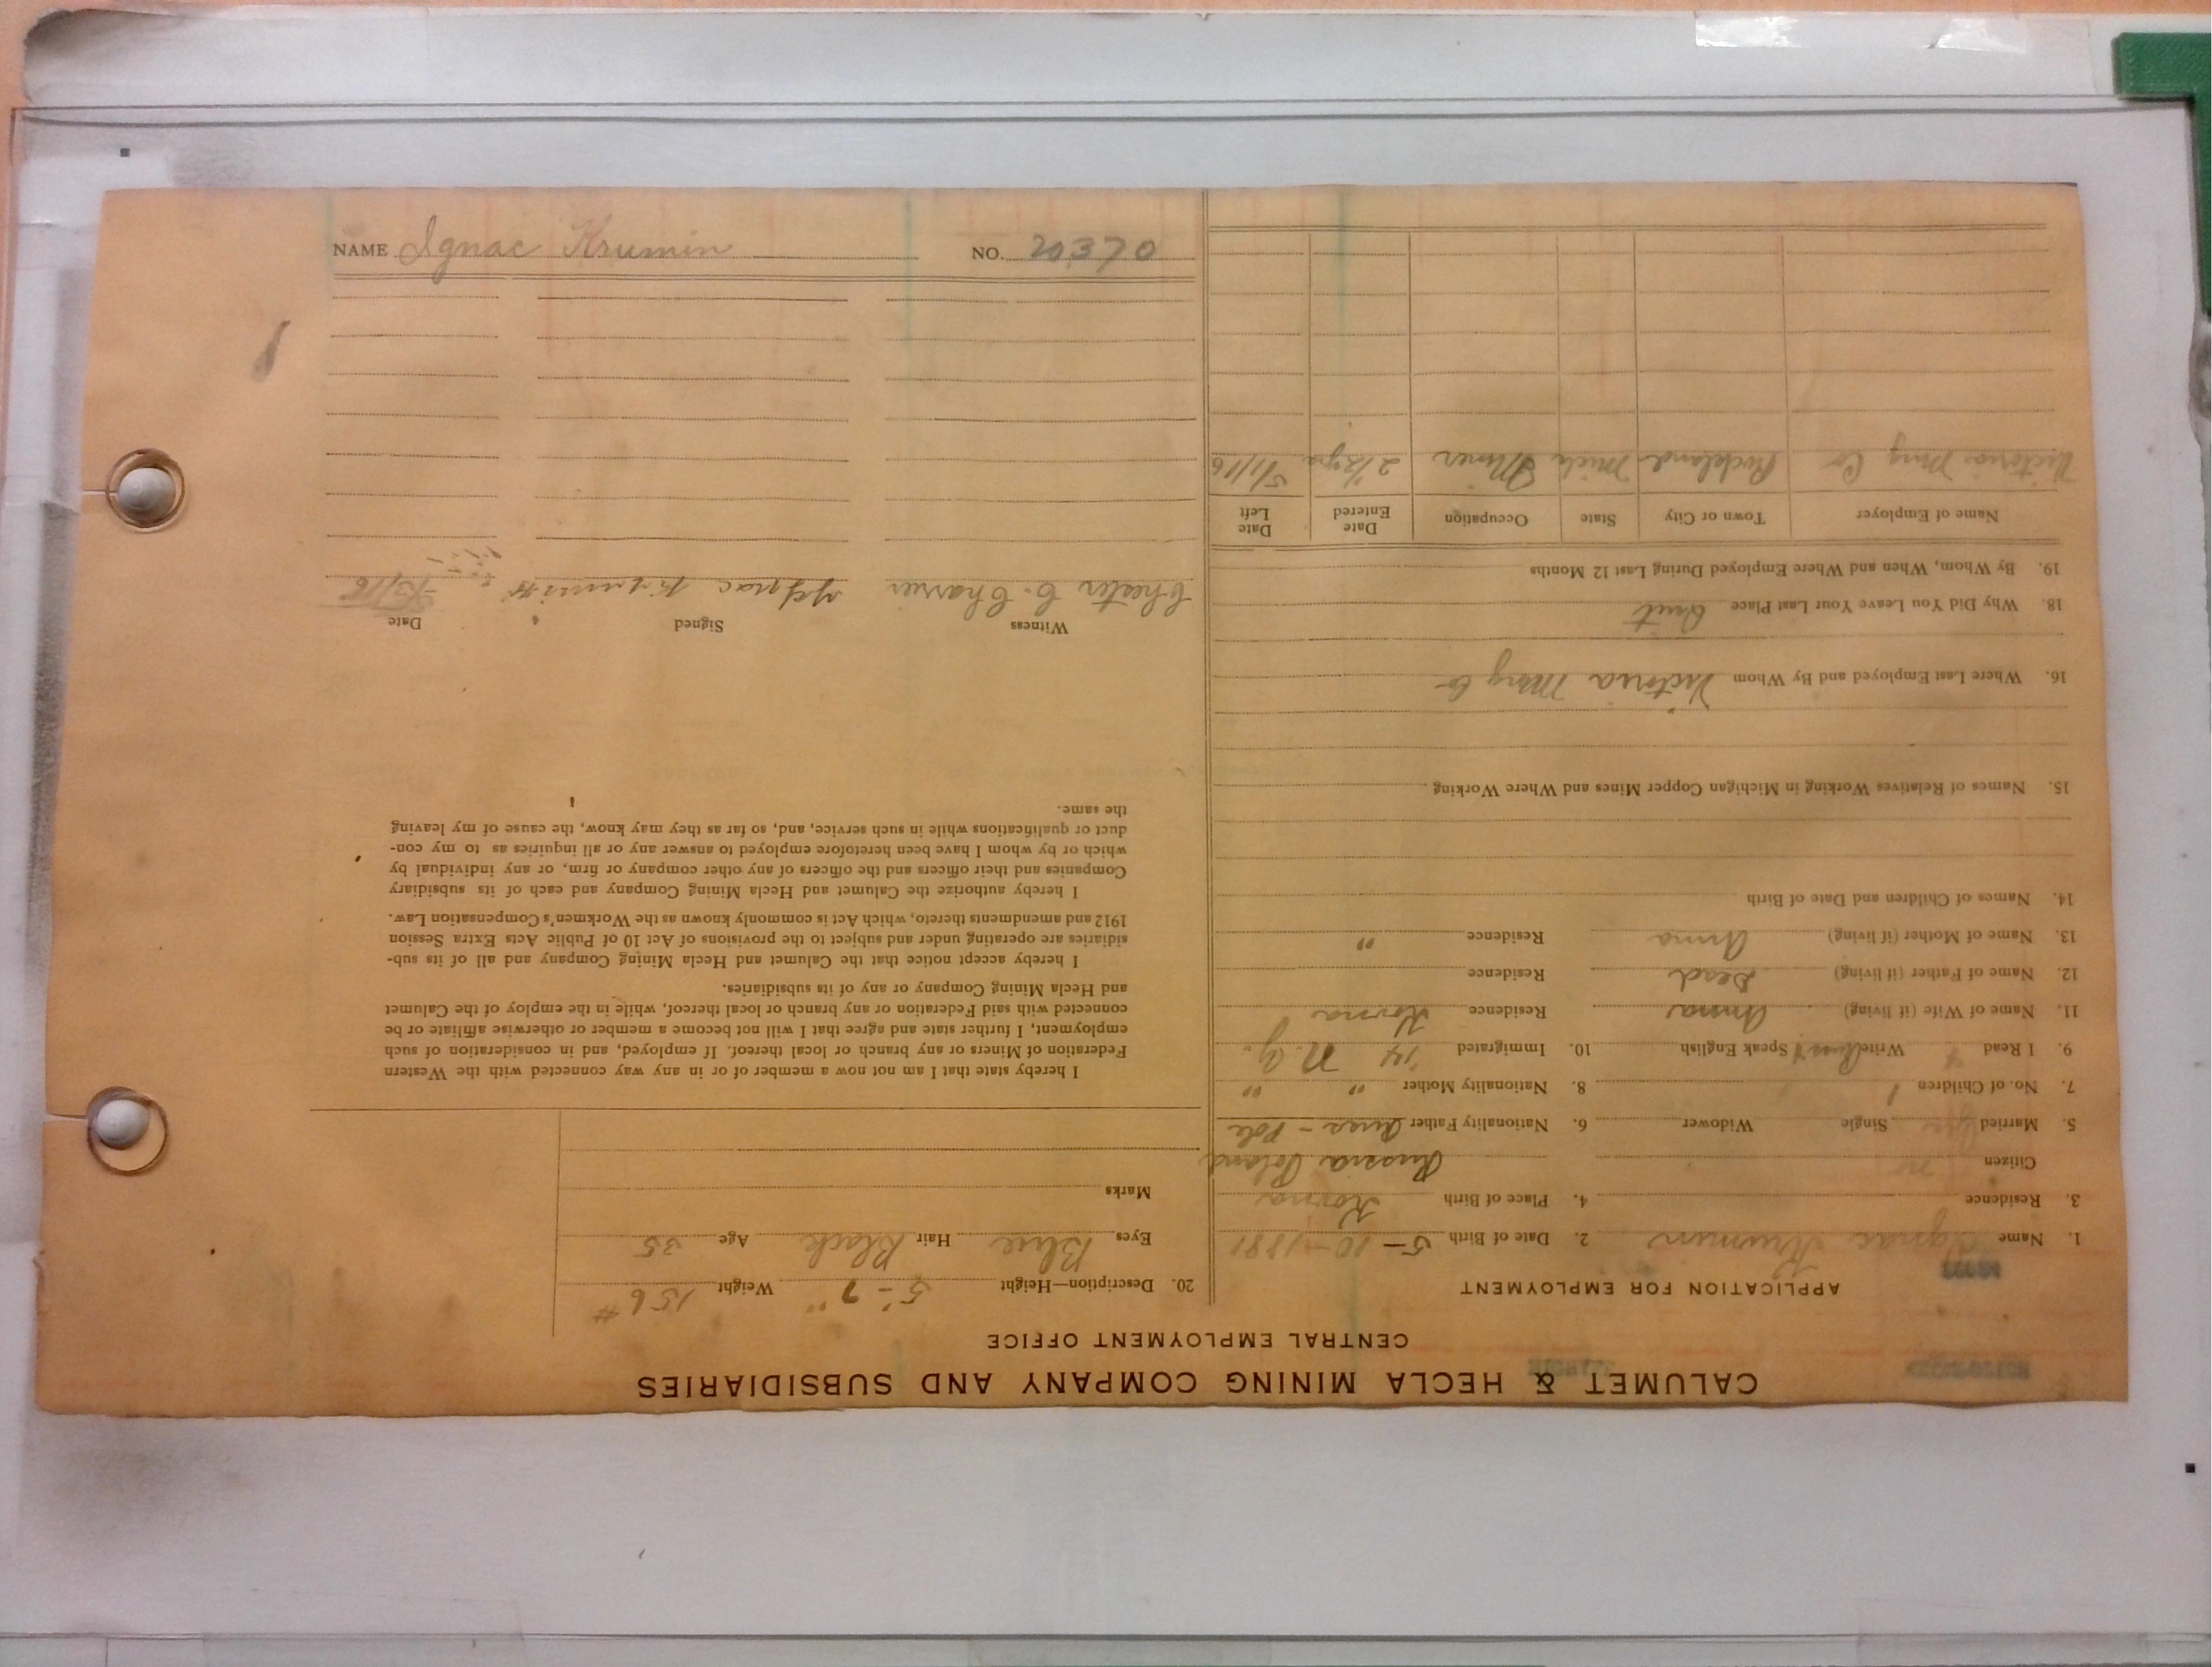 CALUMET & HECLA MINING COMPANY AND SUBSIDIARIES
CENTRAL EMPLOYMENT OFFICE
APPLICATION FOR EMPLOYMENT
1. Name Ignac Krumin 2. Date of Birth 5-10-1881
3. Residence 4. Place of Birth Kovna
Citizen no Russia Poland
5. Married Single Widower 6. Nationality Father Russ-Pole
7. No. of Children 1 8. Nationality Mother " "
9. I Read Write Speak English 10. Immigrated '14 N.Y.
11. Name of Wife (if living) Anna Residence Kovna
12. Name of Father (if living) Dead Residence
13. Name of Mother (if living) Anna Residence "
14. Names of Children and Date of Birth
15. Names of Relatives Working in Michigan Copper Mines and Where Working
16. Where Last Employed and By Whom Victoria Mng Co
18. Why Did You Leave Your Last Place Quit
19. By Whom, When and Where Employed During Last 12 Months
Name of Employer Town or City State Occupation Date Entered Date Left
Victoria Mng Co Rockland Mich Miner 2 1/2 yrs 5/1/16
20. Description—Height 5'-7" Weight 156#
Eyes Blue Hair Black Age 35
Marks
I hereby state that I am not now a member of or in any way connected with the Western
Federation of Miners or any branch or local thereof. If employed, and in consideration of such
employment, I further state and agree that I will not become a member or otherwise affiliate or be
connected with said Federation or any branch or local thereof, while in the employ of the Calumet
and Hecla Mining Company or any of its subsidiaries.
I hereby accept notice that the Calumet and Hecla Mining Company and all of its sub-
sidiaries are operating under and subject to the provisions of Act 10 of Public Acts Extra Session
1912 and amendments thereto, which Act is commonly known as the Workmen's Compensation Law.
I hereby authorize the Calumet and Hecla Mining Company and each of its subsidiary
Companies and their officers and the officers of any other company or firm, or any individual by
which or by whom I have been heretofore employed to answer any or all inquiries as to my con-
duct or qualifications while in such service, and, so far as they may know, the cause of my leaving
the same.
Witness Signed Date
Chester C. Charrier
NAME Ignac Krumin NO. 20370